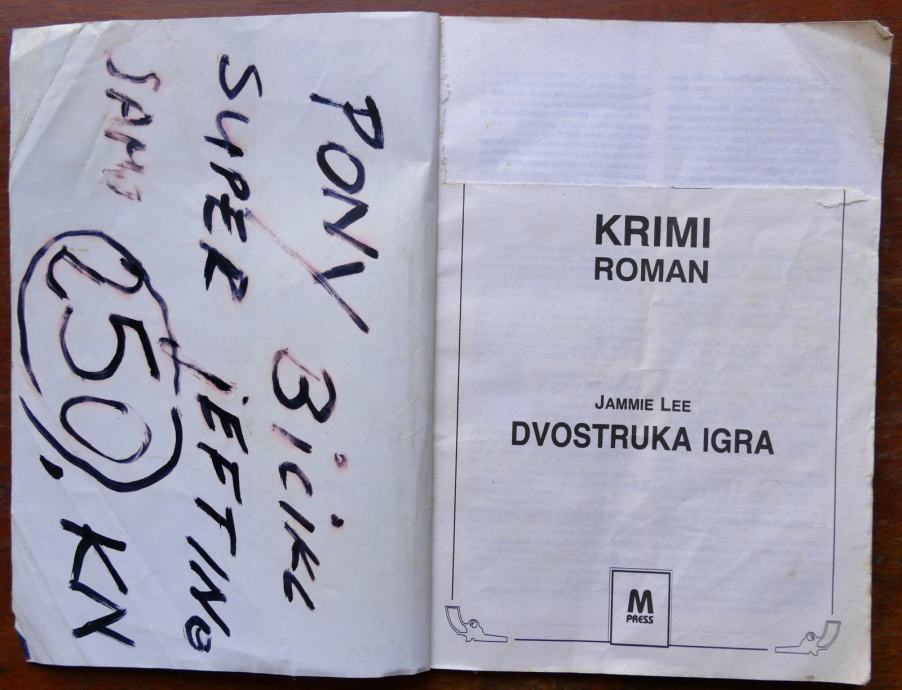 PONY BICIKL
SUPER JEFTINO
SAMO 250. KN
KRIMI
ROMAN
JAMMIE LEE
DVOSTRUKA IGRA
M
PRESS